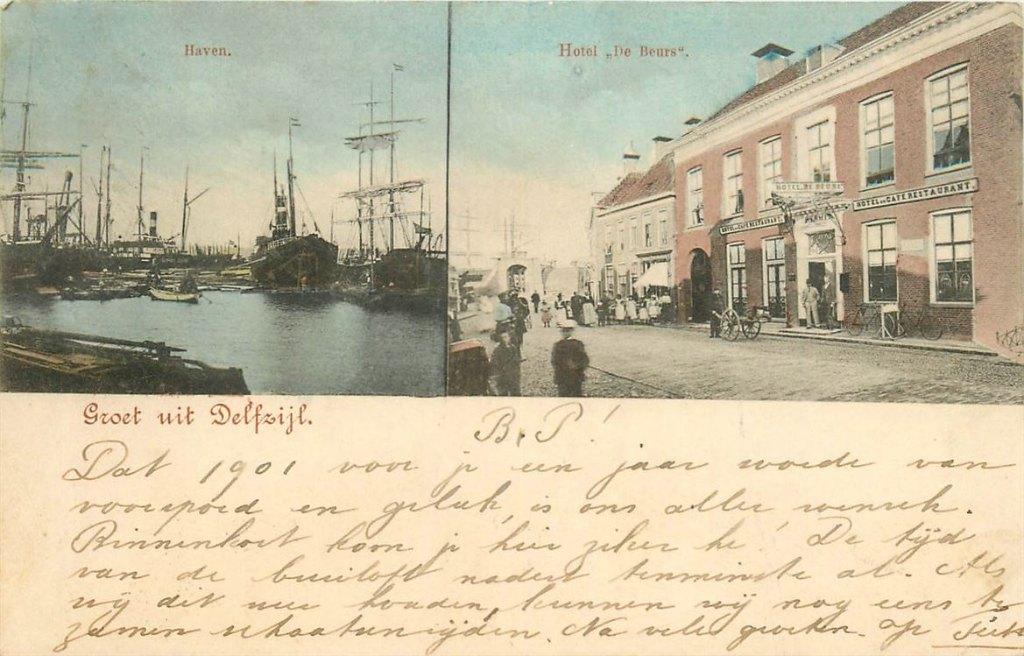 Haven.
Hotel „De Beurs“.
HOTEL DE BEURS
HOTEL en CAFÉ RESTAURANT
HOTEL en CAFÉ RESTAURANT.
Groet uit Delfzijl.
B. P!
Dat 1901 voor je een jaar worde van
voorspoed en geluk, is ons aller wensch.
Binnenkort kom je hier zeker he! De tijd
van de bruiloft nadert tenminste al. Als
wij dit weer houden, kunnen wij nog eens te
zamen schaatsenrijden. Na vele groeten. op